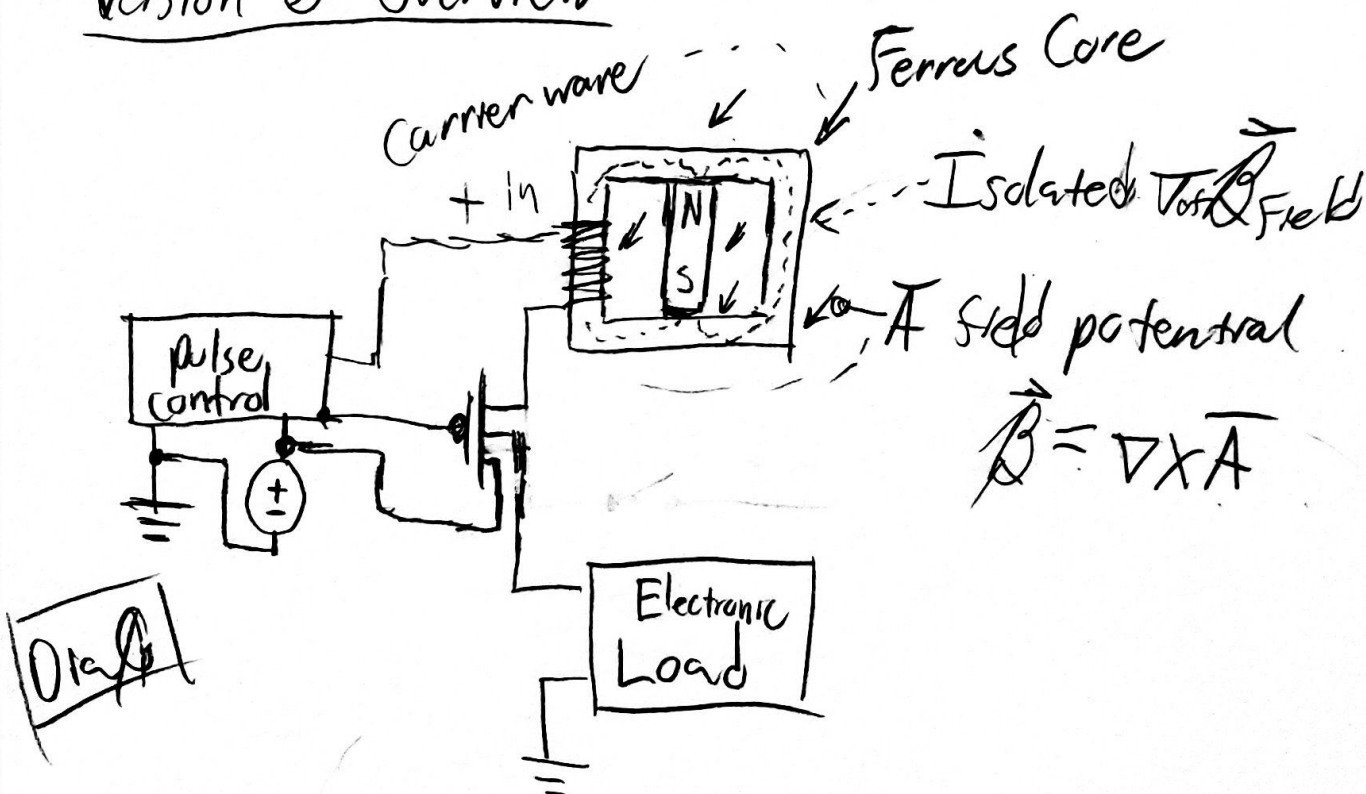 Version 3 Overview
Carrier wave
Ferrous Core
+ in
N
S
Isolated ∇ of B⃗ Field
A̅ field potential
B⃗ = ∇ X A̅
pulse
control
+
-
Electronic
Load
Draft